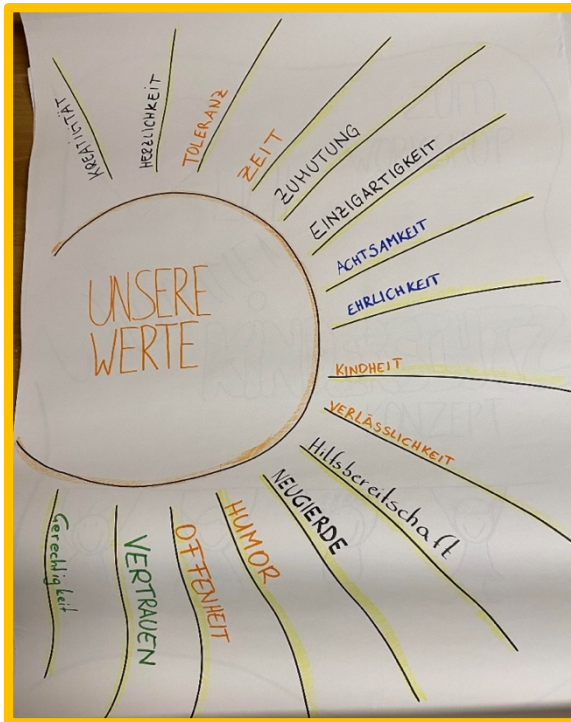 UNSERE
WERTE
KREATIVITÄT
HERZLICHKEIT
TOLERANZ
ZEIT
ZUMUTUNG
EINZIGARTIGKEIT
ACHTSAMKEIT
EHRLICHKEIT
KINDHEIT
VERLÄSSLICHKEIT
Hilfsbereitschaft
NEUGIERDE
HUMOR
OFFENHEIT
VERTRAUEN
Gerechtigkeit